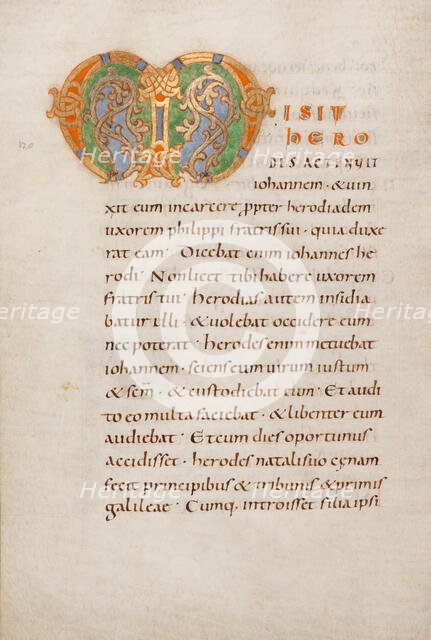 M ISIT
hERO
DES AC TENUIT
iohannem · & uin
xit eum in carcere ppter herodiadem
uxorem philippi fratris sui · quia duxe
rat eam · Dicebat enim iohannes he
rodi · Non licet tibi habere uxorem
fratris tui · herodias autem insidia
batur illi · & uolebat occidere eum
nec poterat · herodes enim metuebat
iohannem · sciens eum uirum iustum
& scm · & custodiebat eum · Et audi
to eo multa faciebat · & libenter eum
audiebat · Et cum dies oportunus
accidisset · herodes natali suo cęnam
fecit principibus & tribunis & primis
galileae · Cumq· introisset filia ipsi
120
Heritage
Heritage
Heritage
Heritage
Heritage
Heritage